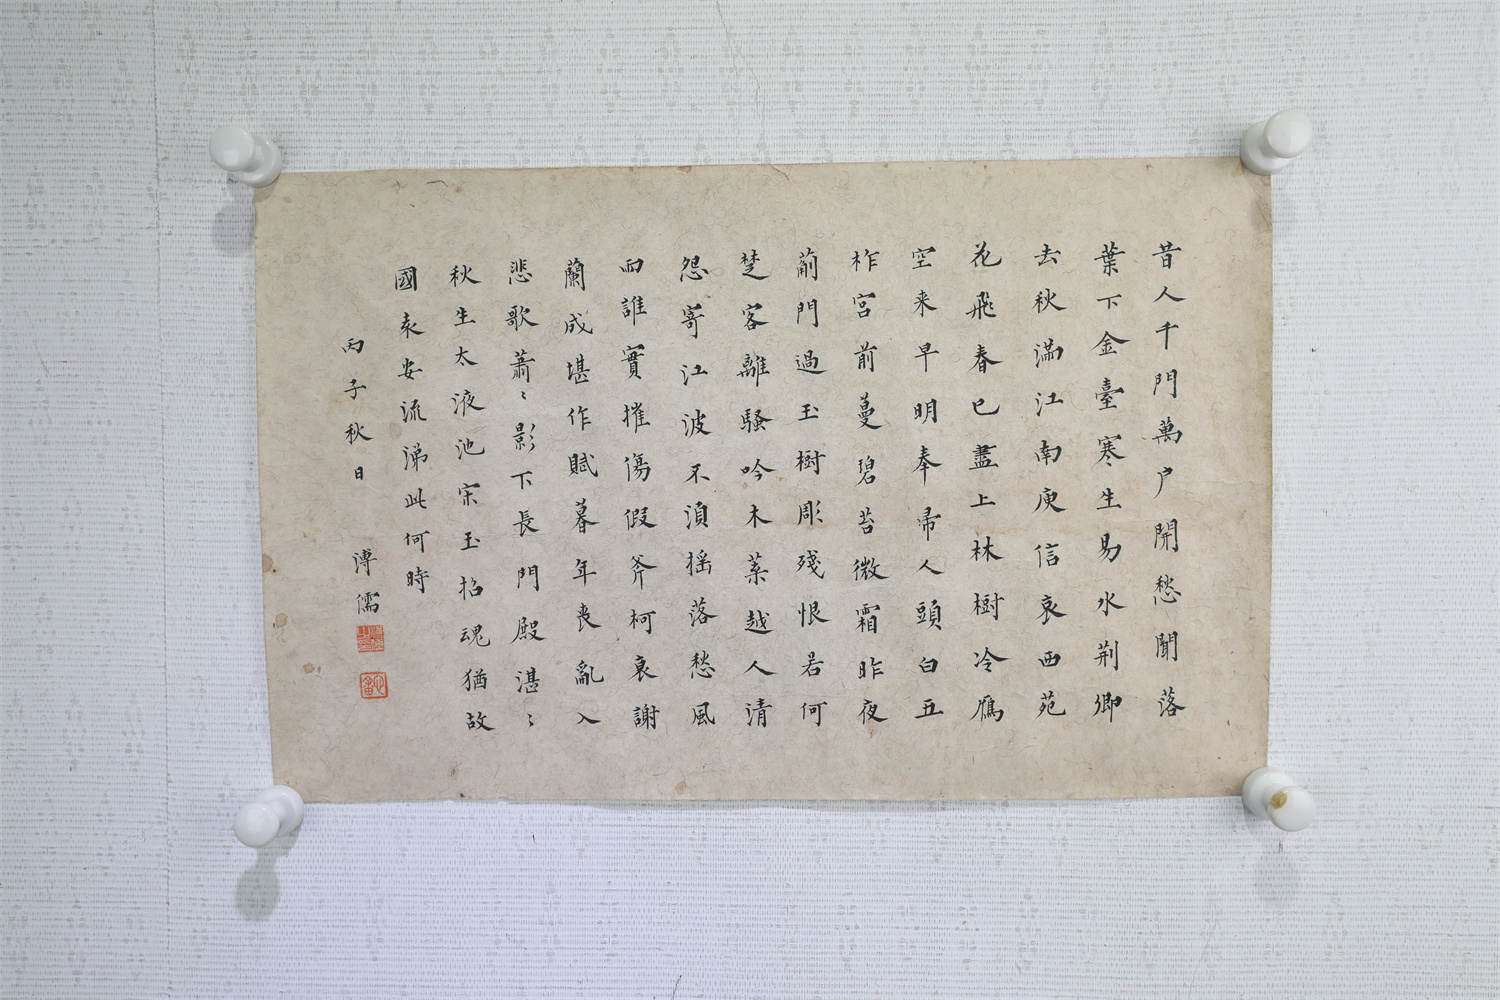 昔人千門萬户開愁聞落
葉下金臺寒生易水荆卿
去秋滿江南庾信哀西苑
花飛春已盡上林樹冷鴈
空来早明奉帚人頭白五
柞宫前蔓碧苔微霜昨夜
薊門過玉樹彫殘恨若何
楚客離騷吟木葉越人清
怨寄江波不湏揺落愁風
雨誰實摧傷假斧柯衰謝
蘭成堪作賦暮年喪亂入
悲歌蕭〻影下長門殿湛〻
秋生太液池宋玉招魂猶故
國袁安流涕此何時
丙子秋日 溥儒